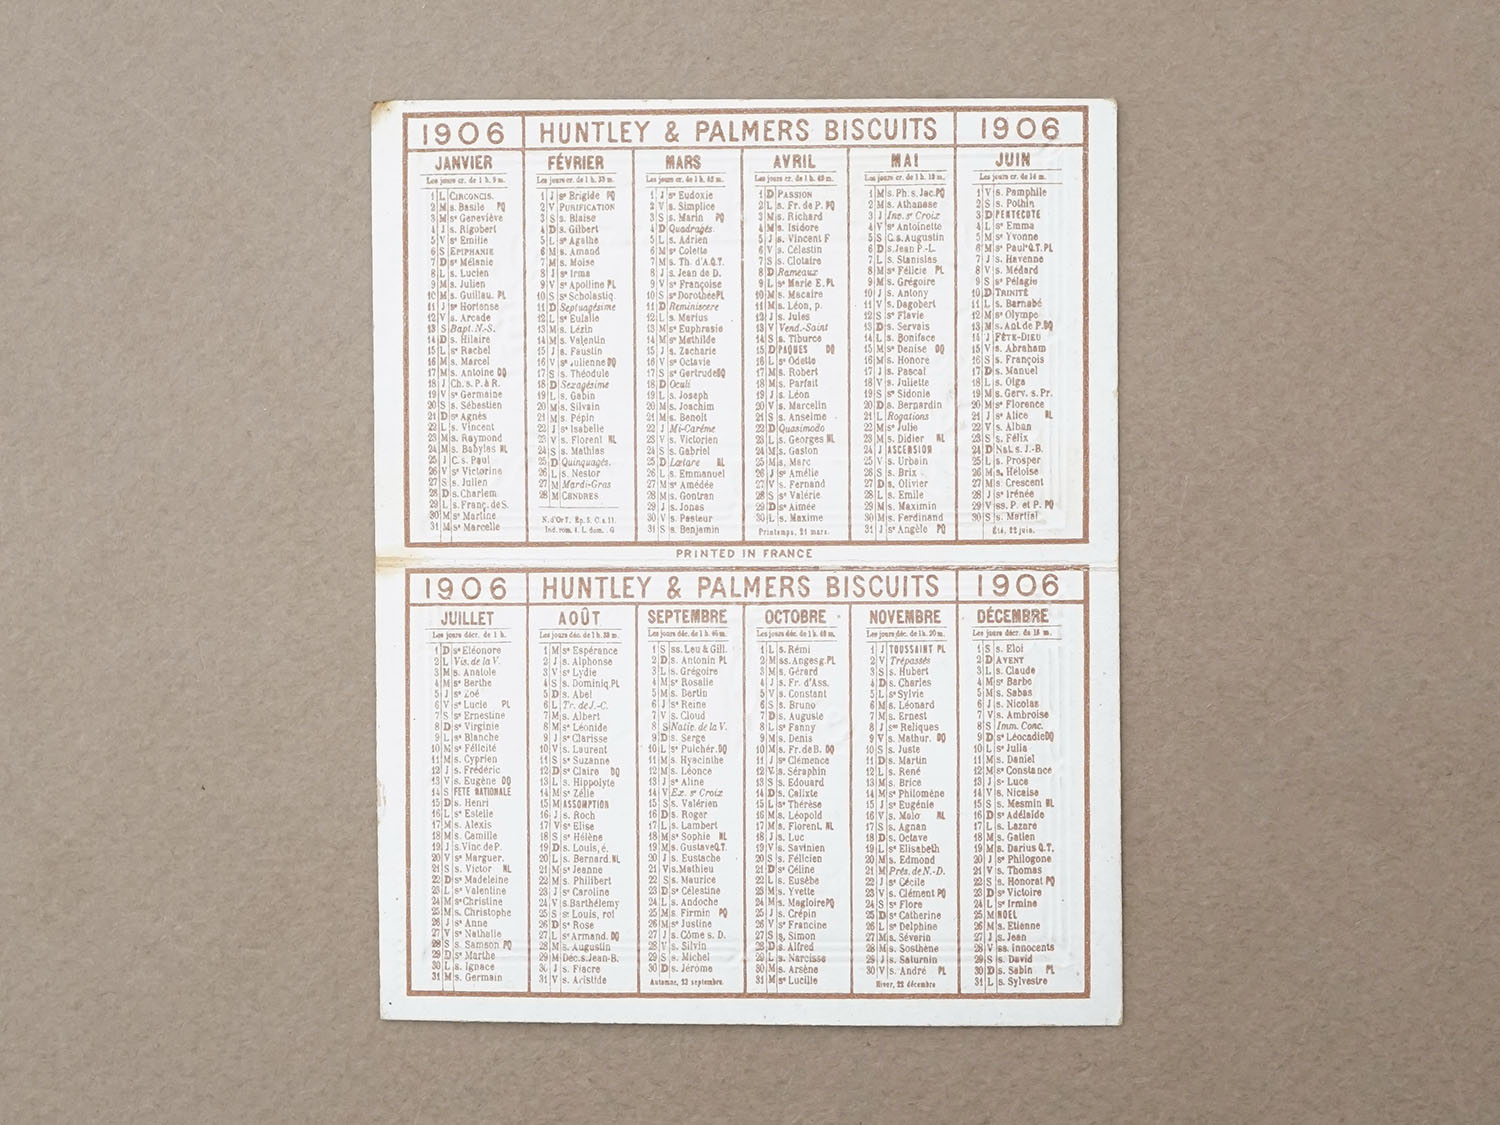 1906 HUNTLEY & PALMERS BISCUITS 1906
JANVIER
Les jours cr. de 1 h. 9 m.
1 L CIRCONCIS.
2 M s. Basile PQ
3 M sᵉ Geneviève
4 J s. Rigobert
5 V sᵉ Emilie
6 S EPIPHANIE
7 D sᵉ Mélanie
8 L s. Lucien
9 M s. Julien
10 M s. Guillau. PL
11 J sᵉ Hortense
12 V s. Arcade
13 S Bapt. N.-S.
14 D s. Hilaire
15 L sᵉ Rachel
16 M s. Marcel
17 M s. Antoine DQ
18 J Ch. s. P. à R.
19 V sᵉ Germaine
20 S s. Sébastien
21 D sᵉ Agnès
22 L s. Vincent
23 M s. Raymond
24 M s. Babylas NL
25 J C. s. Paul
26 V sᵉ Victorine
27 S s. Julien
28 D s. Charlem.
29 L s. Franç. de S.
30 M sᵉ Martine
31 M sᵉ Marcelle
FÉVRIER
Les jours cr. de 1 h. 33 m.
1 J sᵉ Brigide PQ
2 V PURIFICATION
3 S s. Blaise
4 D s. Gilbert
5 L sᵉ Agathe
6 M s. Amand
7 M s. Moïse
8 J sᵉ Irma
9 V sᵉ Apolline PL
10 S sᵉ Scholastiq.
11 D Septuagésime
12 L sᵉ Eulalie
13 M s. Lézin
14 M s. Valentin
15 J s. Faustin
16 V sᵉ Julienne DQ
17 S s. Théodule
18 D Sexagésime
19 L s. Gabin
20 M s. Silvain
21 M s. Pépin
22 J sᵉ Isabelle
23 V s. Florent NL
24 S s. Mathias
25 D Quinquagés.
26 L s. Nestor
27 M Mardi-Gras
28 M CENDRES
N. d'Or 7. Ep. 5. C. s. 11.
Ind. rom. 4. L. dom. G
MARS
Les jours cr. de 1 h. 42 m.
1 J sᵉ Eudoxie
2 V s. Simplice
3 S s. Marin PQ
4 D Quadragés.
5 L s. Adrien
6 M sᵉ Colette
7 M s. Th. d'A. Q.T.
8 J s. Jean de D.
9 V sᵉ Françoise
10 S sᵉ Dorothée PL
11 D Reminiscere
12 L s. Marius
13 M sᵉ Euphrasie
14 M sᵉ Mathilde
15 J s. Zacharie
16 V sᵉ Octavie
17 S sᵉ Gertrude DQ
18 D Oculi
19 L s. Joseph
20 M s. Joachim
21 M s. Benoît
22 J Mi-Carême
23 V s. Victorien
24 S s. Gabriel
25 D Lætare NL
26 L s. Emmanuel
27 M sᵉ Amédée
28 M s. Gontran
29 J s. Jonas
30 V s. Pasteur
31 S s. Benjamin
AVRIL
Les jours cr. de 1 h. 40 m.
1 D PASSION
2 L s. Fr. de P. PQ
3 M s. Richard
4 M s. Isidore
5 J s. Vincent F
6 V s. Célestin
7 S s. Clotaire
8 D Rameaux
9 L sᵉ Marie E. PL
10 M s. Macaire
11 M s. Léon, p.
12 J s. Jules
13 V Vend.-Saint
14 S s. Tiburce
15 D PAQUES DQ
16 L sᵉ Odette
17 M s. Robert
18 M s. Parfait
19 J s. Léon
20 V s. Marcelin
21 S s. Anselme
22 D Quasimodo
23 L s. Georges NL
24 M s. Gaston
25 M s. Marc
26 J sᵉ Amélie
27 V s. Fernand
28 S sᵉ Valérie
29 D sᵉ Aimée
30 L s. Maxime
Printemps, 21 mars.
MAI
Les jours cr. de 1 h. 19 m.
1 M s. Ph. s. Jac. PQ
2 M s. Athanase
3 J Inv. sᵉ Croix
4 V sᵉ Antoinette
5 S C. s. Augustin
6 D s. Jean P.-L.
7 L s. Stanislas
8 M sᵉ Félicie PL
9 M s. Grégoire
10 J s. Antony
11 V s. Dagobert
12 S sᵉ Flavie
13 D s. Servais
14 L s. Boniface
15 M sᵉ Denise DQ
16 M s. Honoré
17 J s. Pascal
18 V s. Juliette
19 S sᵉ Sidonie
20 D s. Bernardin
21 L Rogations
22 M sᵉ Julie
23 M s. Didier NL
24 J ASCENSION
25 V s. Urbain
26 S s. Brix
27 D s. Olivier
28 L s. Emile
29 M s. Maximin
30 M s. Ferdinand
31 J sᵉ Angèle PQ
JUIN
Les jours cr. de 14 m.
1 V s. Pamphile
2 S s. Pothin
3 D PENTECOTE
4 L sᵉ Emma
5 M sᵉ Yvonne
6 M sᵉ Paul Q.T. PL
7 J s. Havenne
8 V s. Médard
9 S sᵉ Pélagie
10 D TRINITÉ
11 L s. Barnabé
12 M sᵉ Olympe
13 M s. Ant. de P. DQ
14 J FÊTE-DIEU
15 V s. Abraham
16 S s. François
17 D s. Manuel
18 L s. Olga
19 M s. Gerv. s. Pr.
20 M sᵉ Florence
21 J sᵉ Alice NL
22 V s. Alban
23 S s. Félix
24 D Nat. s. J.-B.
25 L s. Prosper
26 M s. Héloïse
27 M s. Crescent
28 J s. Irénée
29 V ss. P. et P. PQ
30 S s. Martial
Été, 22 juin.
PRINTED IN FRANCE
1906 HUNTLEY & PALMERS BISCUITS 1906
JUILLET
Les jours décr. de 1 h.
1 D sᵉ Eléonore
2 L Vis. de la V.
3 M s. Anatole
4 M sᵉ Berthe
5 J sᵉ Zoé
6 V sᵉ Lucie PL
7 S sᵉ Ernestine
8 D sᵉ Virginie
9 L sᵉ Blanche
10 M sᵉ Félicité
11 M s. Cyprien
12 J s. Frédéric
13 V s. Eugène DQ
14 S FÊTE NATIONALE
15 D s. Henri
16 L sᵉ Estelle
17 M s. Alexis
18 M s. Camille
19 J s. Vinc de P.
20 V sᵉ Marguer.
21 S s. Victor NL
22 D sᵉ Madeleine
23 L sᵉ Valentine
24 M sᵉ Christine
25 M s. Christophe
26 J sᵉ Anne
27 V sᵉ Nathalie
28 S s. Samson PQ
29 D sᵉ Marthe
30 L s. Ignace
31 M s. Germain
AOÛT
Les jours déc. de 1 h. 38 m.
1 M sᵉ Espérance
2 J s. Alphonse
3 V sᵉ Lydie
4 S s. Dominiq. PL
5 D s. Abel
6 L Tr. de J.-C.
7 M s. Albert
8 M sᵉ Léonide
9 J sᵉ Clarisse
10 V s. Laurent
11 S sᵉ Suzanne
12 D sᵉ Claire DQ
13 L s. Hippolyte
14 M sᵉ Zélie
15 M ASSOMPTION
16 J s. Roch
17 V sᵉ Elise
18 S sᵉ Hélène
19 D s. Louis, é.
20 L s. Bernard. NL
21 M sᵉ Jeanne
22 M s. Philibert
23 J sᵉ Caroline
24 V s. Barthélemy
25 S s. Louis, roi
26 D sᵉ Rose
27 L sᵉ Armand. DQ
28 M s. Augustin
29 M Déc. s. Jean-B.
30 J s. Fiacre
31 V s. Aristide
SEPTEMBRE
Les jours déc. de 1 h. 46 m.
1 S ss. Leu & Gill.
2 D s. Antonin PL
3 L s. Grégoire
4 M sᵉ Rosalie
5 M s. Bertin
6 J sᵉ Reine
7 V s. Cloud
8 S Nativ. de la V.
9 D s. Serge
10 L sᵉ Pulchér. DQ
11 M s. Hyacinthe
12 M s. Léonce
13 J sᵉ Aline
14 V Ex. sᵉ Croix
15 S s. Valérien
16 D s. Roger
17 L s. Lambert
18 M sᵉ Sophie NL
19 M s. Gustave Q.T.
20 J s. Eustache
21 V s. Mathieu
22 S s. Maurice
23 D sᵉ Célestine
24 L s. Andoche
25 M s. Firmin PQ
26 M sᵉ Justine
27 J s. Côme s. D.
28 V s. Silvin
29 S s. Michel
30 D s. Jérôme
Automne, 23 septembre.
OCTOBRE
Les jours déc. de 1 h. 46 m.
1 L s. Rémi
2 M ss. Anges g. PL
3 M s. Gérard
4 J s. Fr. d'Ass.
5 V s. Constant
6 S s. Bruno
7 D s. Auguste
8 L sᵉ Fanny
9 M s. Denis
10 M s. Fr. de B. DQ
11 J sᵉ Clémence
12 V s. Séraphin
13 S s. Edouard
14 D s. Calixte
15 L sᵉ Thérèse
16 M s. Léopold
17 M s. Florent. NL
18 J s. Luc
19 V s. Savinien
20 S s. Félicien
21 D sᵉ Céline
22 L s. Eusèbe
23 M s. Yvette
24 M s. Magloire PQ
25 J s. Crépin
26 V sᵉ Francine
27 S s. Simon
28 D s. Alfred
29 L s. Narcisse
30 M s. Arsène
31 M sᵉ Lucille
NOVEMBRE
Les jours déc. de 1 h. 20 m.
1 J TOUSSAINT PL
2 V Trépassés
3 S s. Hubert
4 D s. Charles
5 L sᵉ Sylvie
6 M s. Léonard
7 M s. Ernest
8 J sᵉˢ Reliques
9 V s. Mathur. DQ
10 S s. Juste
11 D s. Martin
12 L s. René
13 M s. Brice
14 M sᵉ Philomène
15 J sᵉ Eugénie
16 V s. Malo NL
17 S s. Agnan
18 D s. Octave
19 L sᵉ Elisabeth
20 M s. Edmond
21 M Prés. de N.-D.
22 J sᵉ Cécile
23 V s. Clément PQ
24 S sᵉ Flore
25 D sᵉ Catherine
26 L sᵉ Delphine
27 M s. Séverin
28 M s. Sosthène
29 J s. Saturnin
30 V s. André PL
Hiver, 22 décembre
DÉCEMBRE
Les jours décr. de 15 m.
1 S s. Eloi
2 D AVENT
3 L s. Claude
4 M sᵉ Barbe
5 M s. Sabas
6 J s. Nicolas
7 V s. Ambroise
8 S Imm. Conc.
9 D sᵉ Léocadie DQ
10 L sᵉ Julia
11 M s. Daniel
12 M sᵉ Constance
13 J sᵉ Luce
14 V s. Nicaise
15 S s. Mesmin NL
16 D sᵉ Adélaïde
17 L s. Lazare
18 M s. Gatien
19 M s. Darius Q.T.
20 J sᵉ Philogone
21 V s. Thomas
22 S s. Honorat PQ
23 D sᵉ Victoire
24 L sᵉ Irmine
25 M NOEL
26 M s. Etienne
27 J s. Jean
28 V ss. Innocents
29 S s. David
30 D s. Sabin PL
31 L s. Sylvestre